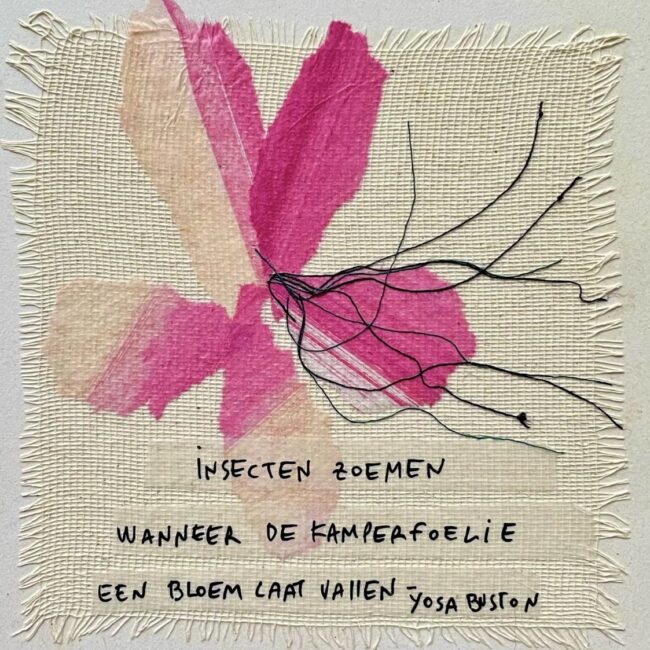 iNSECTEN ZOEMEN
WANNEER DE KAMPERFOELiE
EEN BLOEM LAAT VAllEN - YOSA BUSTON